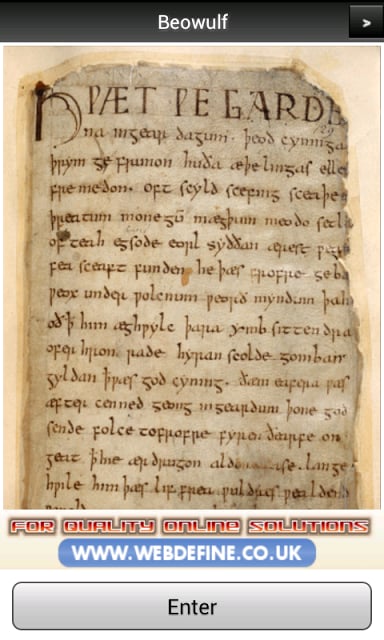 Beowulf
>
HǷÆT ǷE GARDE
na ingear dagum. þeod cyninga
þrym ge frunon huða æþelingas elle
fre medon. oft scyld scefing sceaþe
þreatum monegū mægþum meodo setl
of teah egsode eorl syððan ærest ƿea
fea sceaft funden he þæs frofre geba
ƿeox under ƿolcnum ƿeorð myndum þah
oð þ him æghƿylc þara ymb sittendra
ofer hron rade hyran scolde gomban
gyldan þ ƿæs god cyning. ðæm eafera ƿæs
æfter cenned geong in geardum þone god
sende folce tofrofre fyren ðearfe on
geat þ hie ær drugon lange
hƿile him þæs lif frea ƿuldres ƿealdend
FOR QUALITY ONLINE SOLUTIONS
WWW.WEBDEFINE.CO.UK
Enter